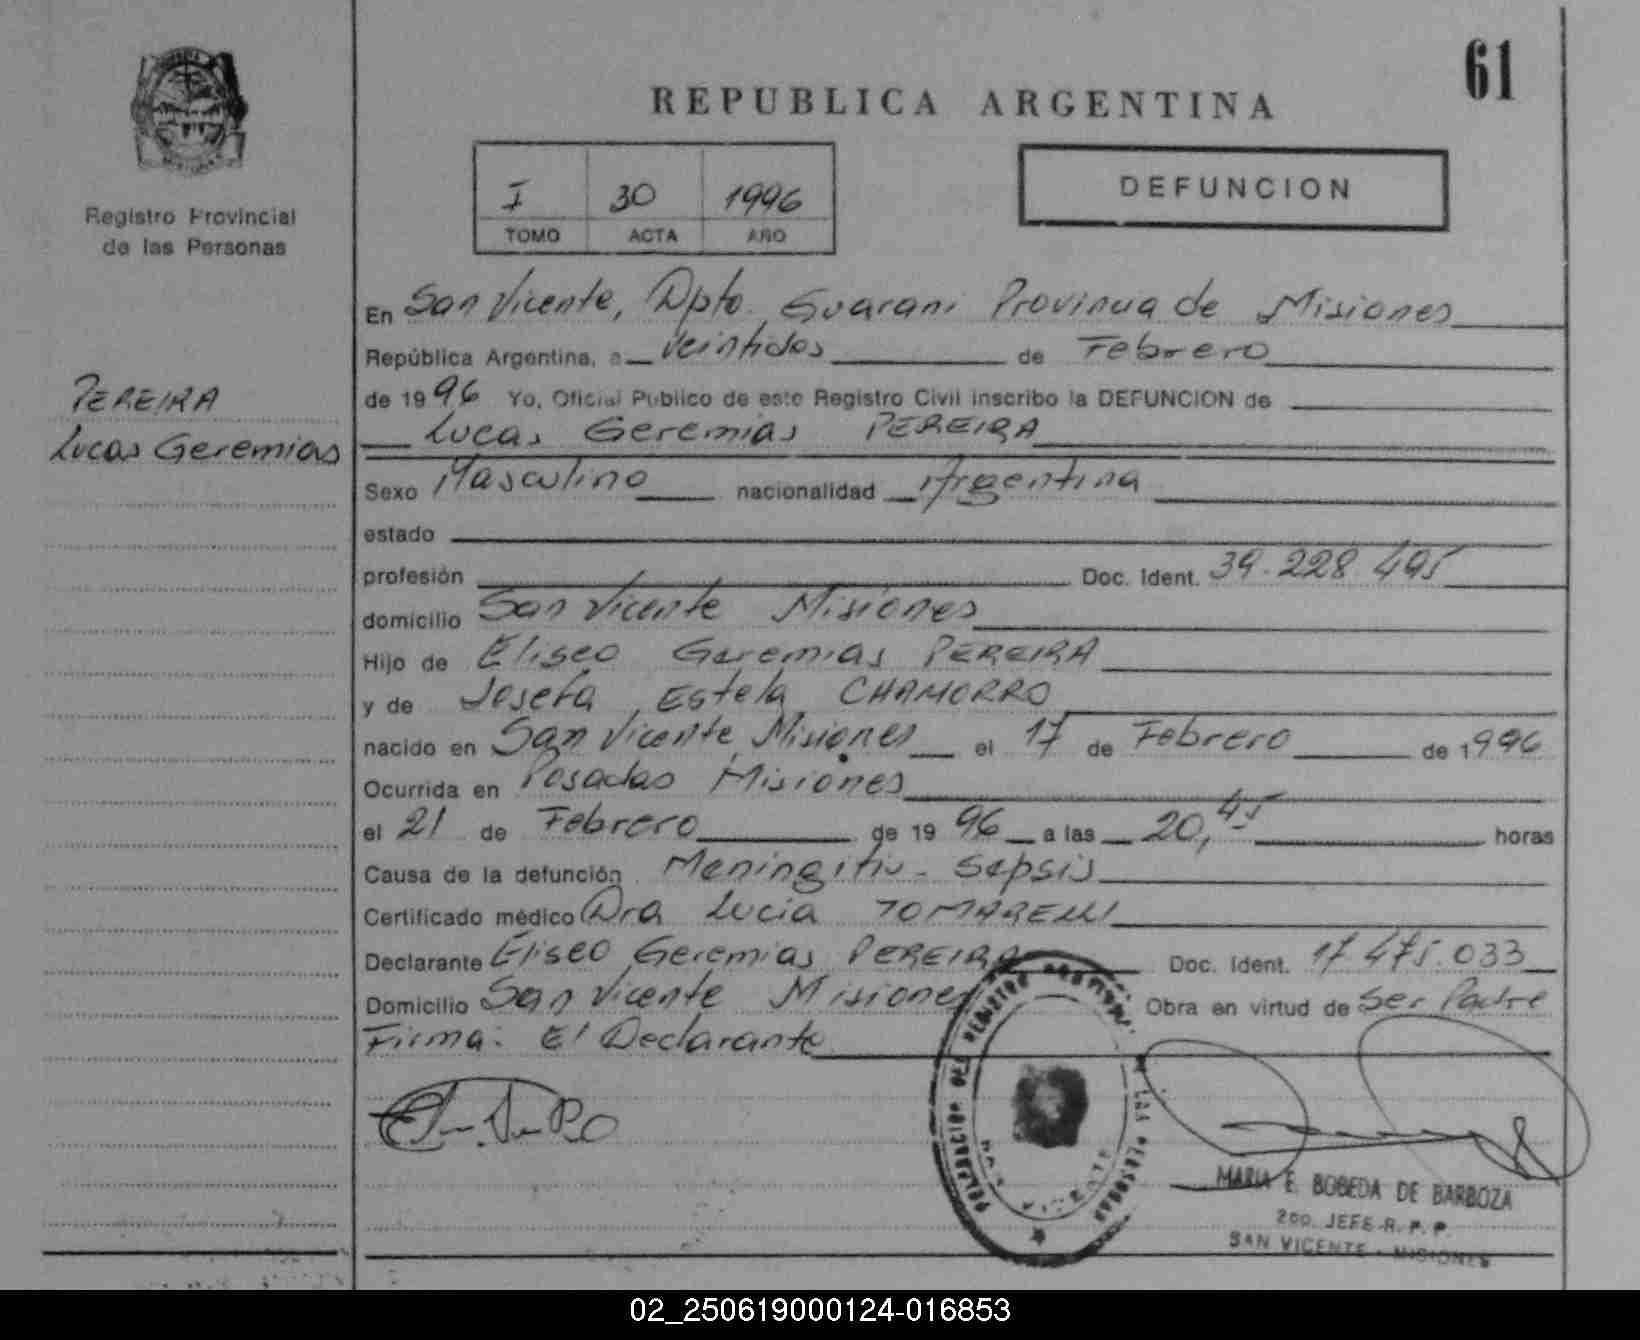 61
REPUBLICA ARGENTINA
I 30 1996
TOMO ACTA AÑO
DEFUNCION
Registro Provincial
de las Personas
PEREIRA
Lucas Geremias
En San Vicente, Dpto. Guarani Provincia de Misiones
República Argentina, a veintidos de Febrero
de 1996 Yo, Oficial Publico de este Registro Civil inscribo la DEFUNCION de
Lucas Geremias PEREIRA
Sexo Masculino nacionalidad Argentina
estado
profesión Doc. Ident. 39.228.495
domicilio San Vicente Misiones
Hijo de Eliseo Geremias PEREIRA
y de Josefa Estela CHAMORRO
nacido en San Vicente, Misiones el 17 de Febrero de 1996
Ocurrida en Posadas Misiones
el 21 de Febrero de 1996 a las 20,45 horas
Causa de la defunción Meningitis - Sepsis
Certificado médico Dra Lucia TOMARELLI
Declarante Eliseo Geremias PEREIRA Doc. Ident. 17.475.033
Domicilio San Vicente Misiones Obra en virtud de Ser Padre
Firma: El Declarante
DELEGACION DEL REGISTRO PROVINCIAL DE LAS PERSONAS
SAN VICENTE
MARIA E. BOBEDA DE BARBOZA
2do. JEFE R. P. P.
SAN VICENTE - MISIONES
02_250619000124-016853